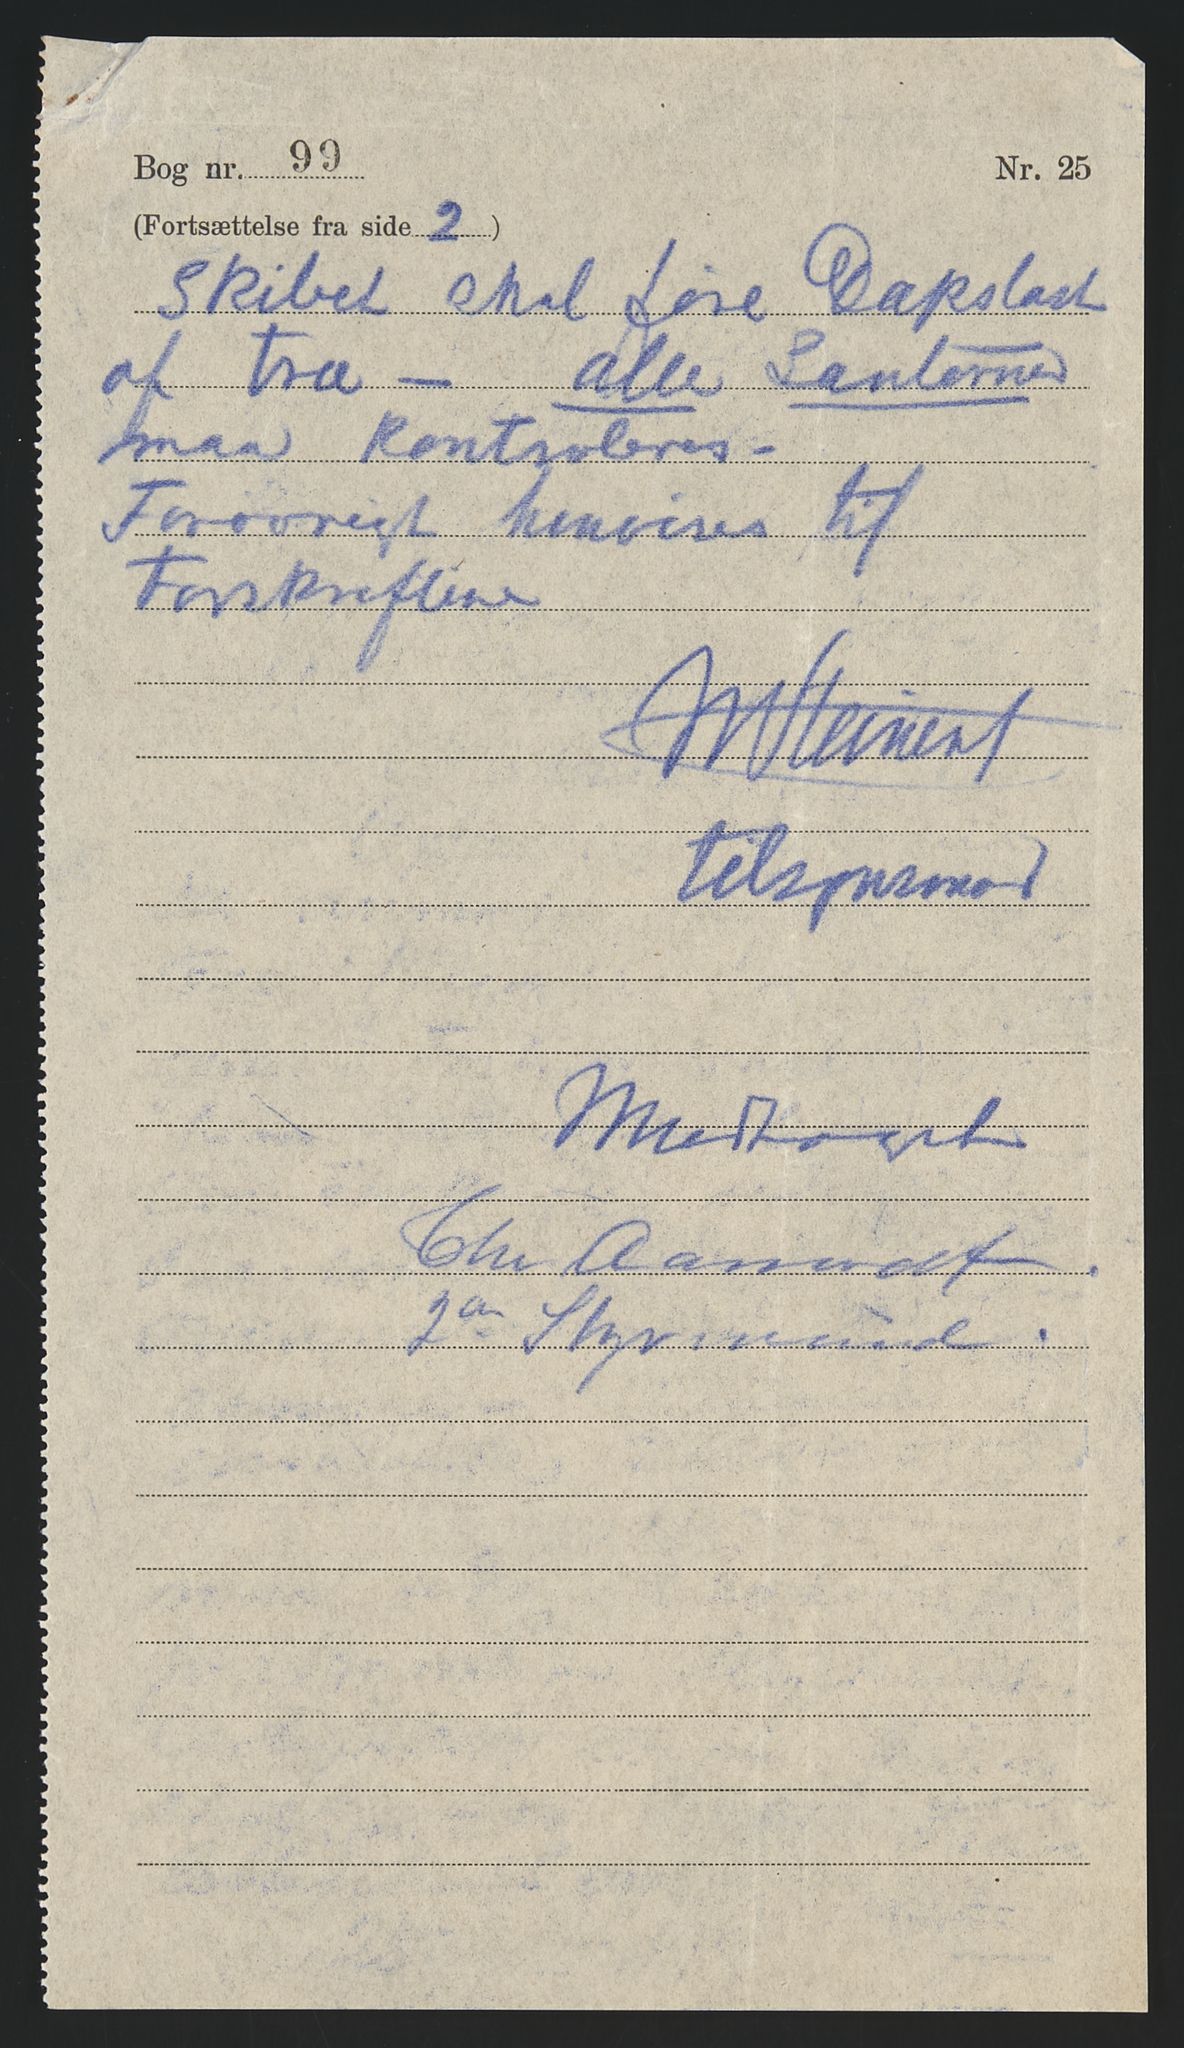 Bog nr. 99
Nr. 25
(Fortsættelse fra side 2)
Skibet skal føre Dækslast
af træ — alle Lanterner
maa kontroleres -
Forøvrigt henvises til
Forskrifterne
tilsynsmand
Modtaget
Chr
2den Styrmand.